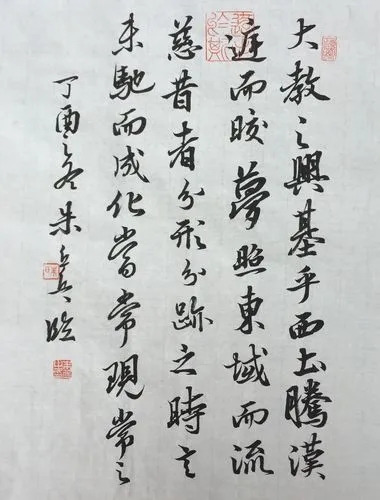 大教之興基乎西土騰漢
庭而皎夢照東域而流
慈昔者分形分跡之時言
未馳而成化當常現常之
丁酉冬朱臨